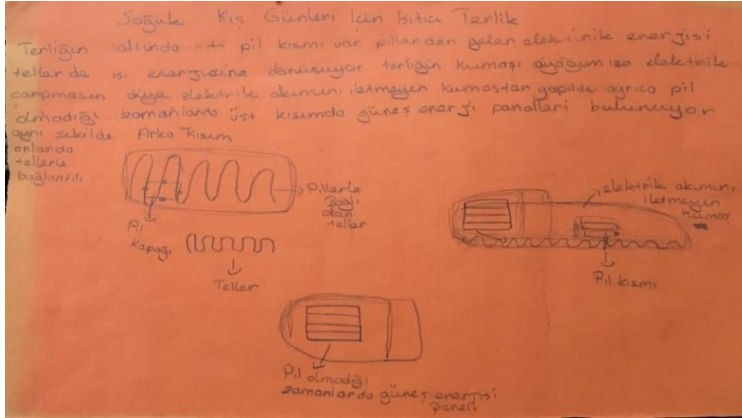 Soğuk Kış Günleri İçin Isıtıcı Terlik
Terliğin altında pil kısmı var pillerden gelen elektirik enerjisi
tellerde ısı enerjisine dönüşüyor terliğin kumaşı ayağımıza elektirik
çarpmasın diye elektirik akımını iletmeyen kumaştan yapıldı ayrıca pil
olmadığı zamanlarda üst kısımda güneş enerji panelleri bulunuyor
aynı şekilde Arka Kısım
onlarda
tellerle
bağlantılı
Pillerle
Bağlı
olan
teller
Pil
Kapağı
Teller
elektirik akımını
iletmeyen
kumaş
Pil kısmı
Pil olmadığı
zamanlarda güneş enerjisi
paneli